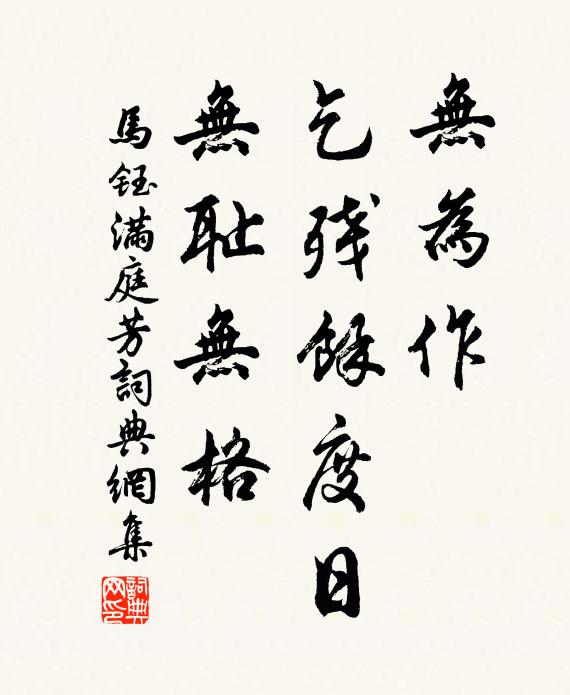 無為作
乞残餘度日
無恥無格
馬鈺满庭芳詞典網集
詞典網印